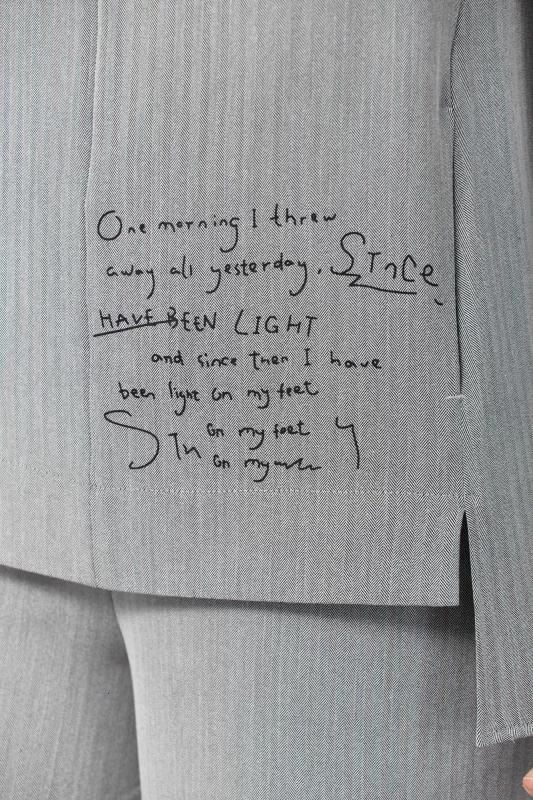 One morning I threw
away all yesterday. SInCe
HAVE BEEN LIGHT
and since then I have
been light on my feet
on my feet
on my